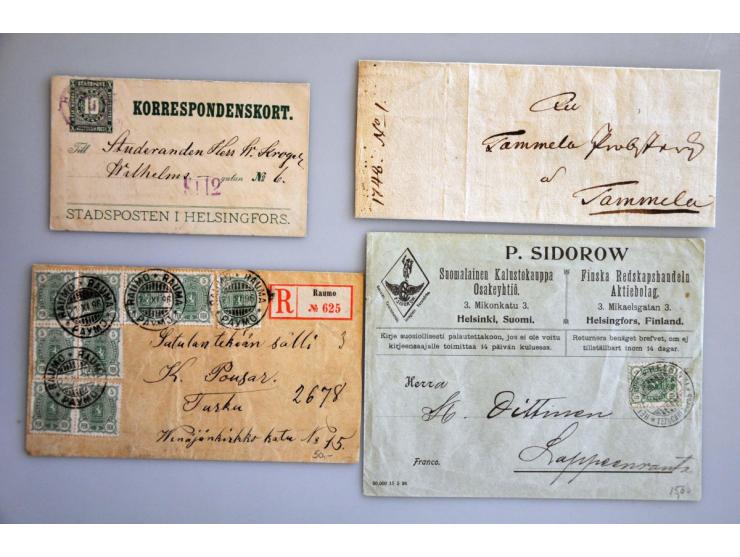 10
KORRESPONDENSKORT.
Till Studeranden Herr W. Krogel
Wilhelms-gatan № 6.
STADSPOSTEN I HELSINGFORS.
Tammela
af
Tammela
RAUMO • RAUMA
XI 96
PAYMO
R
Raumo
№ 625
3
K. Pousar.
Turku
2678
katu No 15.
50,-
P. SIDOROW
Suomalainen Kalustokauppa
Osakeyhtiö.
3. Mikonkatu 3.
Helsinki, Suomi.
Finska Redskapshandeln
Aktiebolag.
3. Mikaelsgatan 3.
Helsingfors, Finland.
Kirje suosiollisesti palautettakoon, jos ei ole voitu
kirjeensaajalle toimittaa 14 päivän kuluessa.
Returnera benäget brefvet, om ej
tillställbart inom 14 dagar.
Herra
Dittmen
Lappeenranta
Franco.